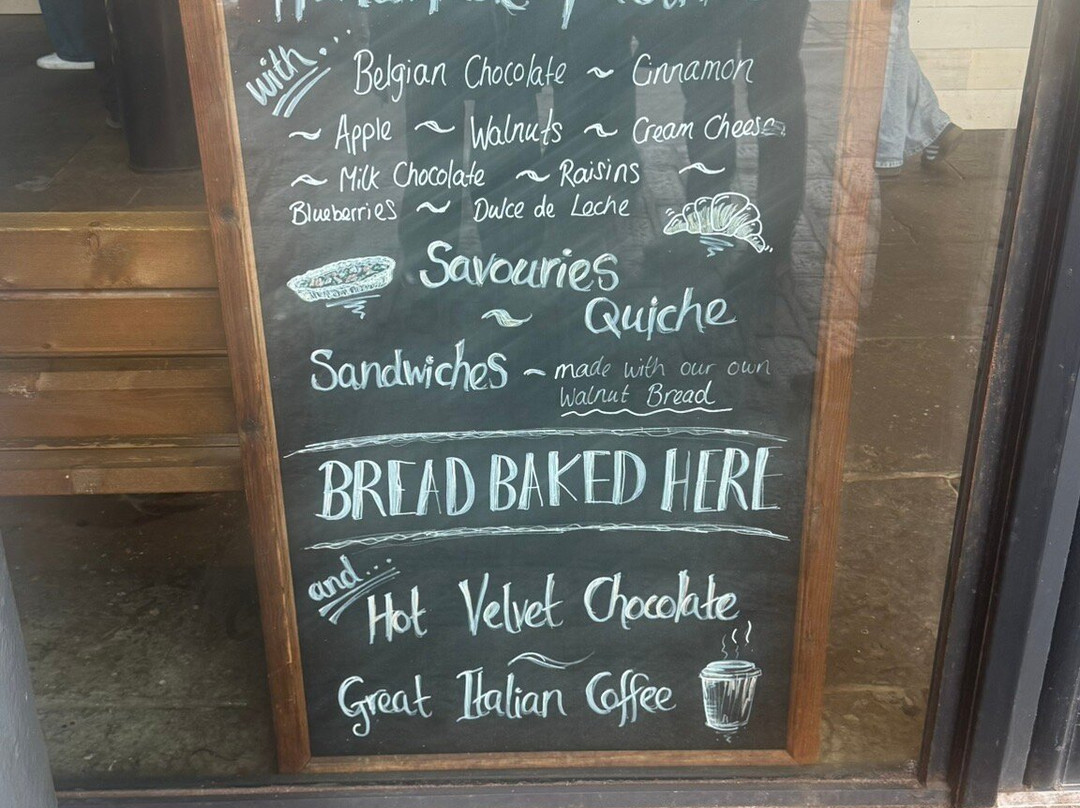 with...
Belgian Chocolate ~ Cinnamon
~ Apple ~ Walnuts ~ Cream Cheese
~ Milk Chocolate ~ Raisins ~
Blueberries ~ Dulce de Leche
Savouries
~ Quiche
Sandwiches ~ made with our own
Walnut Bread
BREAD BAKED HERE
and...
Hot Velvet Chocolate
~
Great Italian Coffee